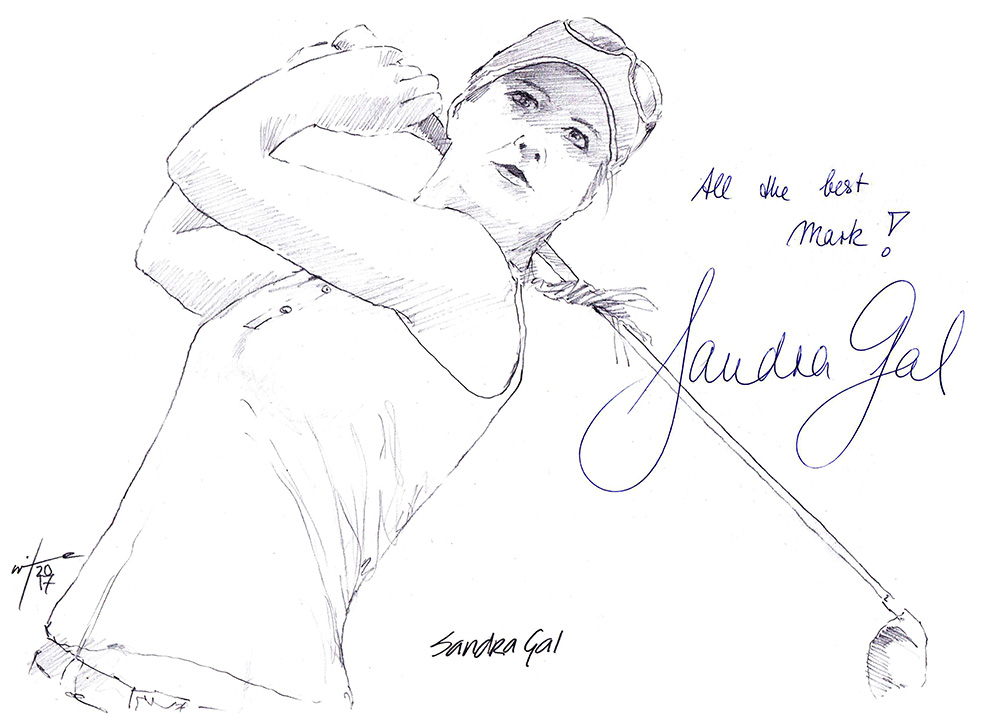 All the best
Mark!
Sandra Gal
20
17
Sandra Gal